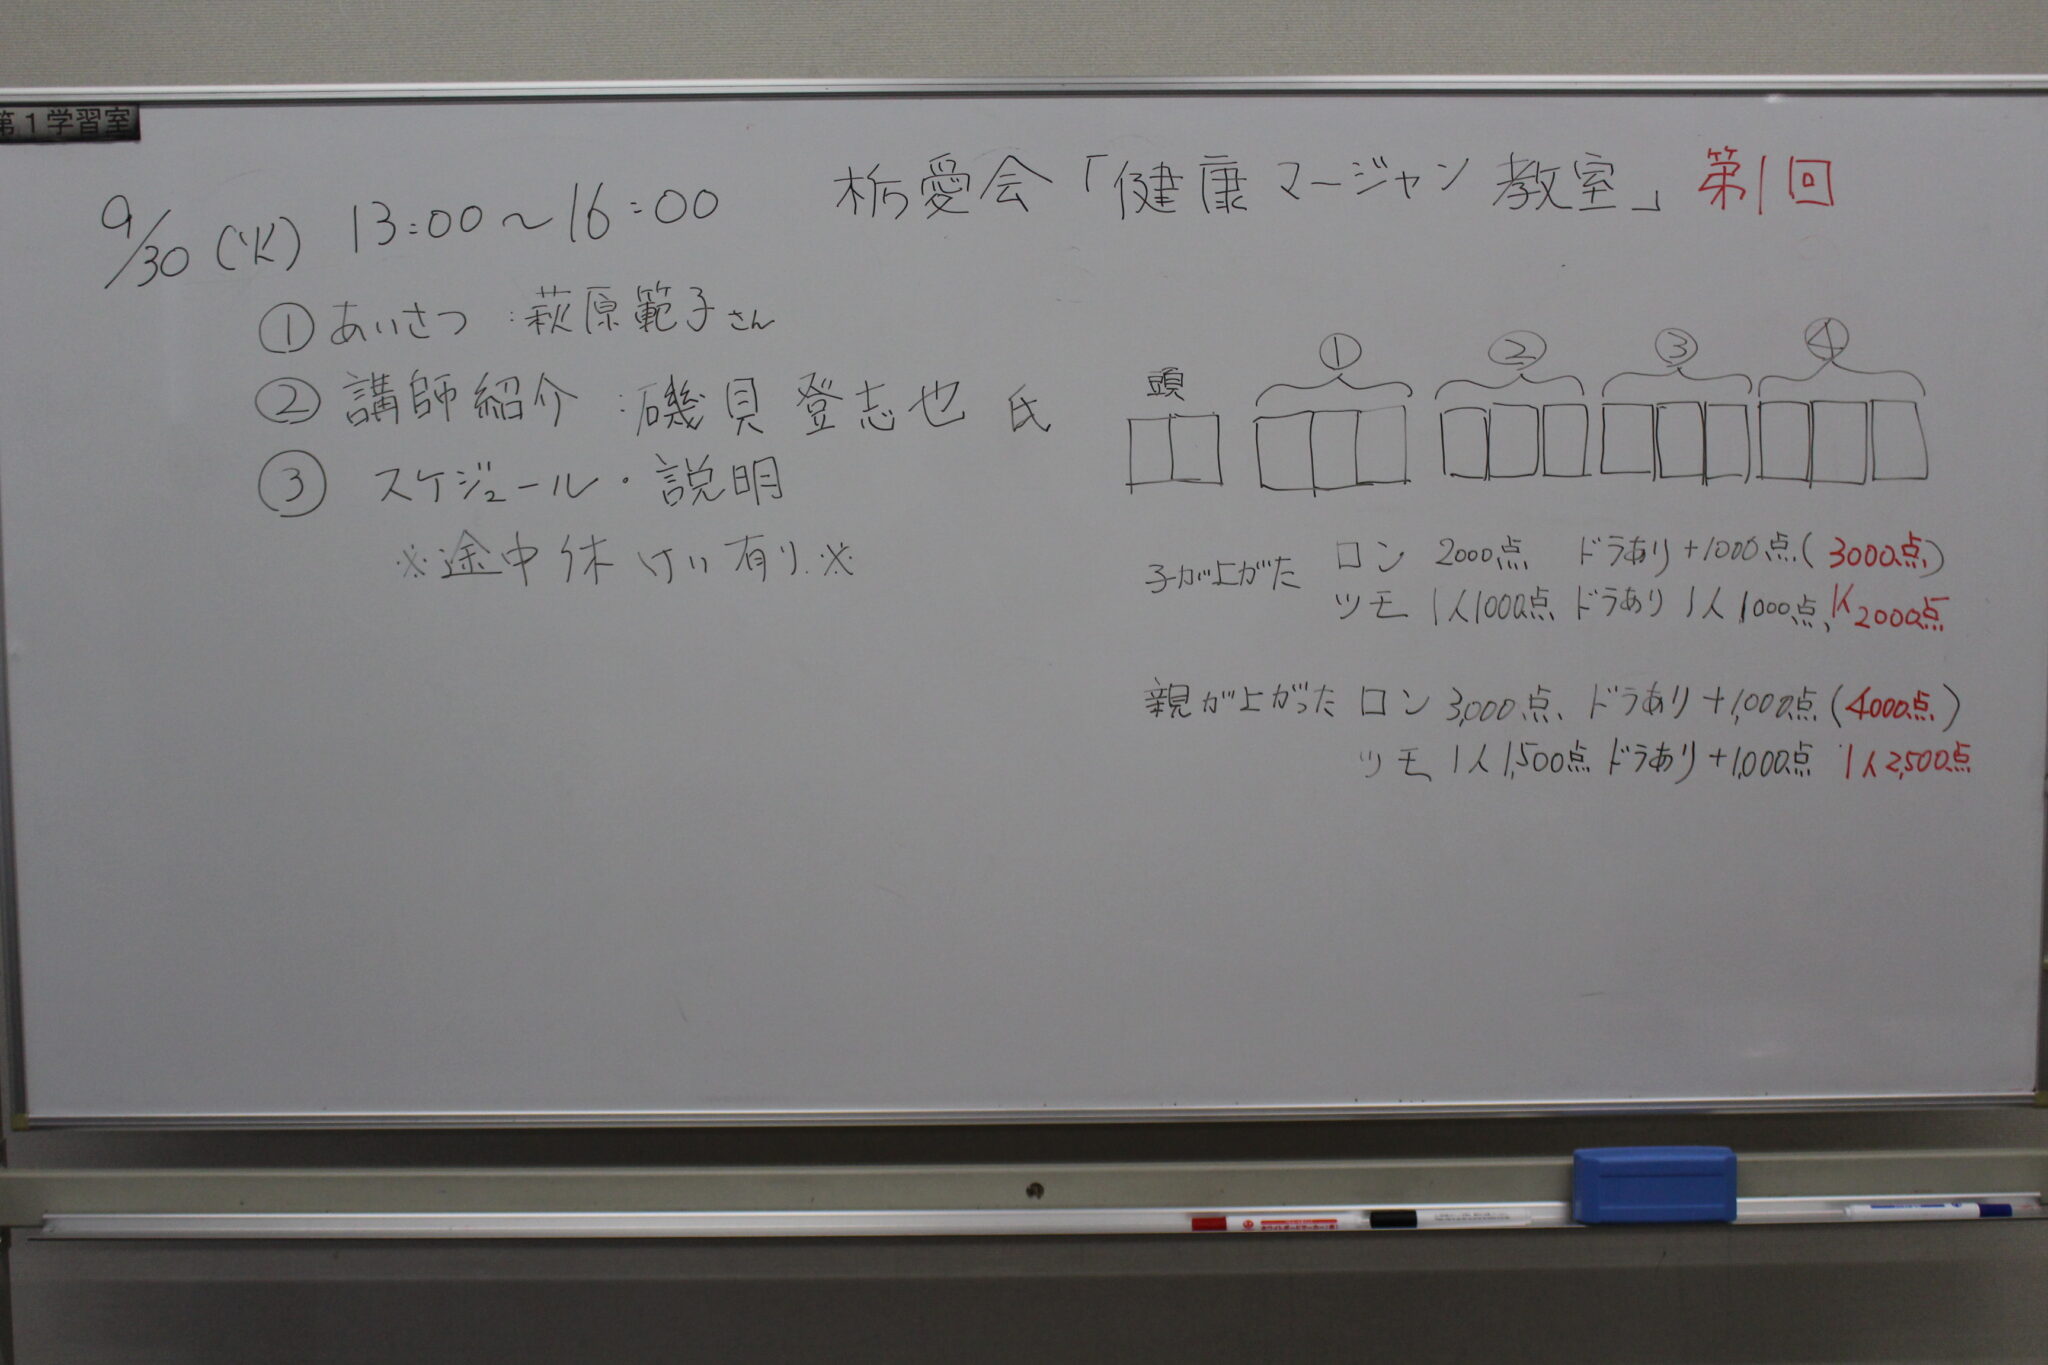 第1学習室
9/30(火) 13:00～16:00
栃愛会「健康マージャン教室」第1回
①あいさつ:萩原範子さん
②講師紹介:磯貝登志也 氏
③ スケジュール・説明
※途中休けい有り.※
頭 ① ② ③ ④
子が上がた ロン 2000点 ドラあり+1000点(3000点)
ツモ 1人1000点 ドラあり 1人1000点、1人2000点
親が上がった ロン 3,000点、ドラあり+1,000点(4000点)
ツモ 1人1,500点 ドラあり+1,000点 1人2,500点